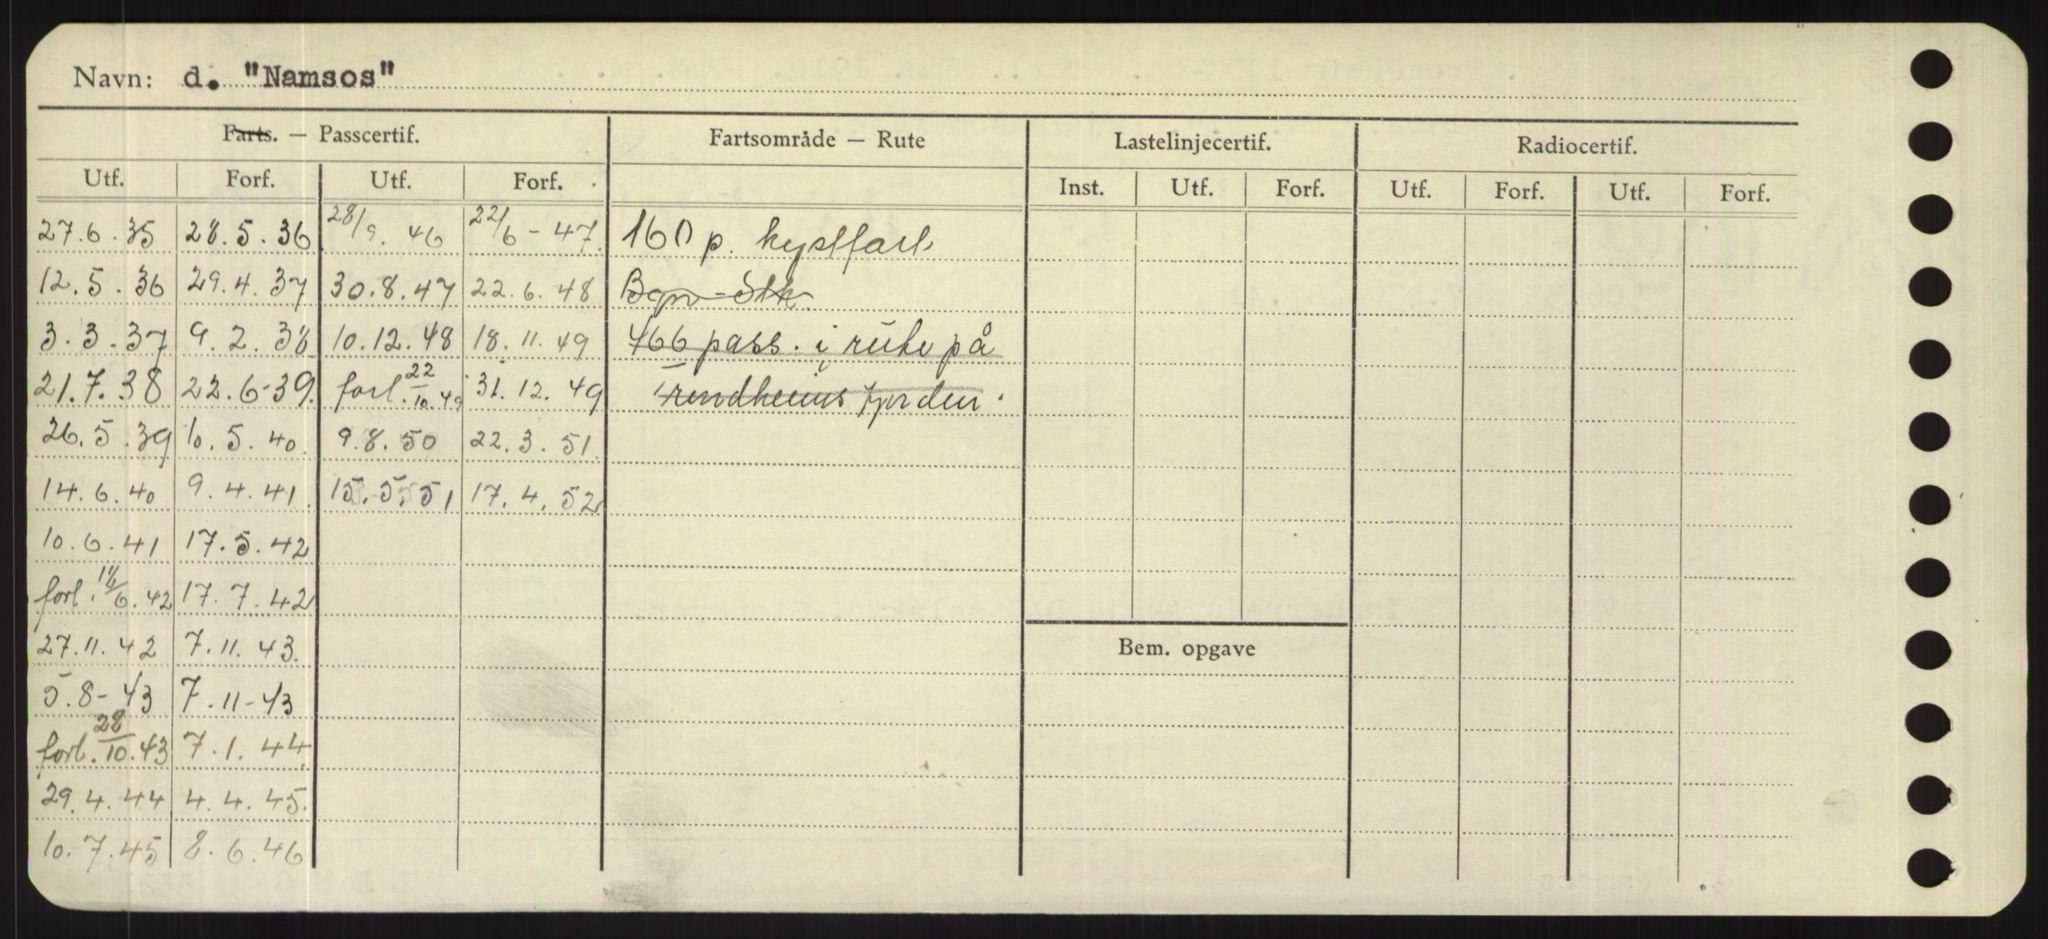 Navn: d. "Namsos"
Farts. — Passcertif. Fartsområde — Rute Lastelinjecertif. Radiocertif.
Utf. Forf. Utf. Forf. Inst. Utf. Forf. Utf. Forf. Utf. Forf.
27.6.35 28.5.36 28/9. 46 22/6-47. 160 p. kystfart
12.5.36 29.4.37 30.8.47 22.6.48 Bgn-Stk.
3.3.37 9.2.38 10.12.48 18.11.49 466 pass. i rute på
21.7.38 22.6-39. forl. 22/10.49 31.12.49 Trondheims fjorden.
26.5.39 10.5.40. 9.8.50 22.3.51.
14.6.40 9.4.41. 15.5.51 17.4.52
10.6.41 17.5.42
forl. /6.42 17.7.42
27.11.42 7.11.43.
5.8-43 7.11-43
forl. 28/10.43 7.1.44
29.4.44 4.4.45.
10.7.45 8.6.46
Bem. opgave